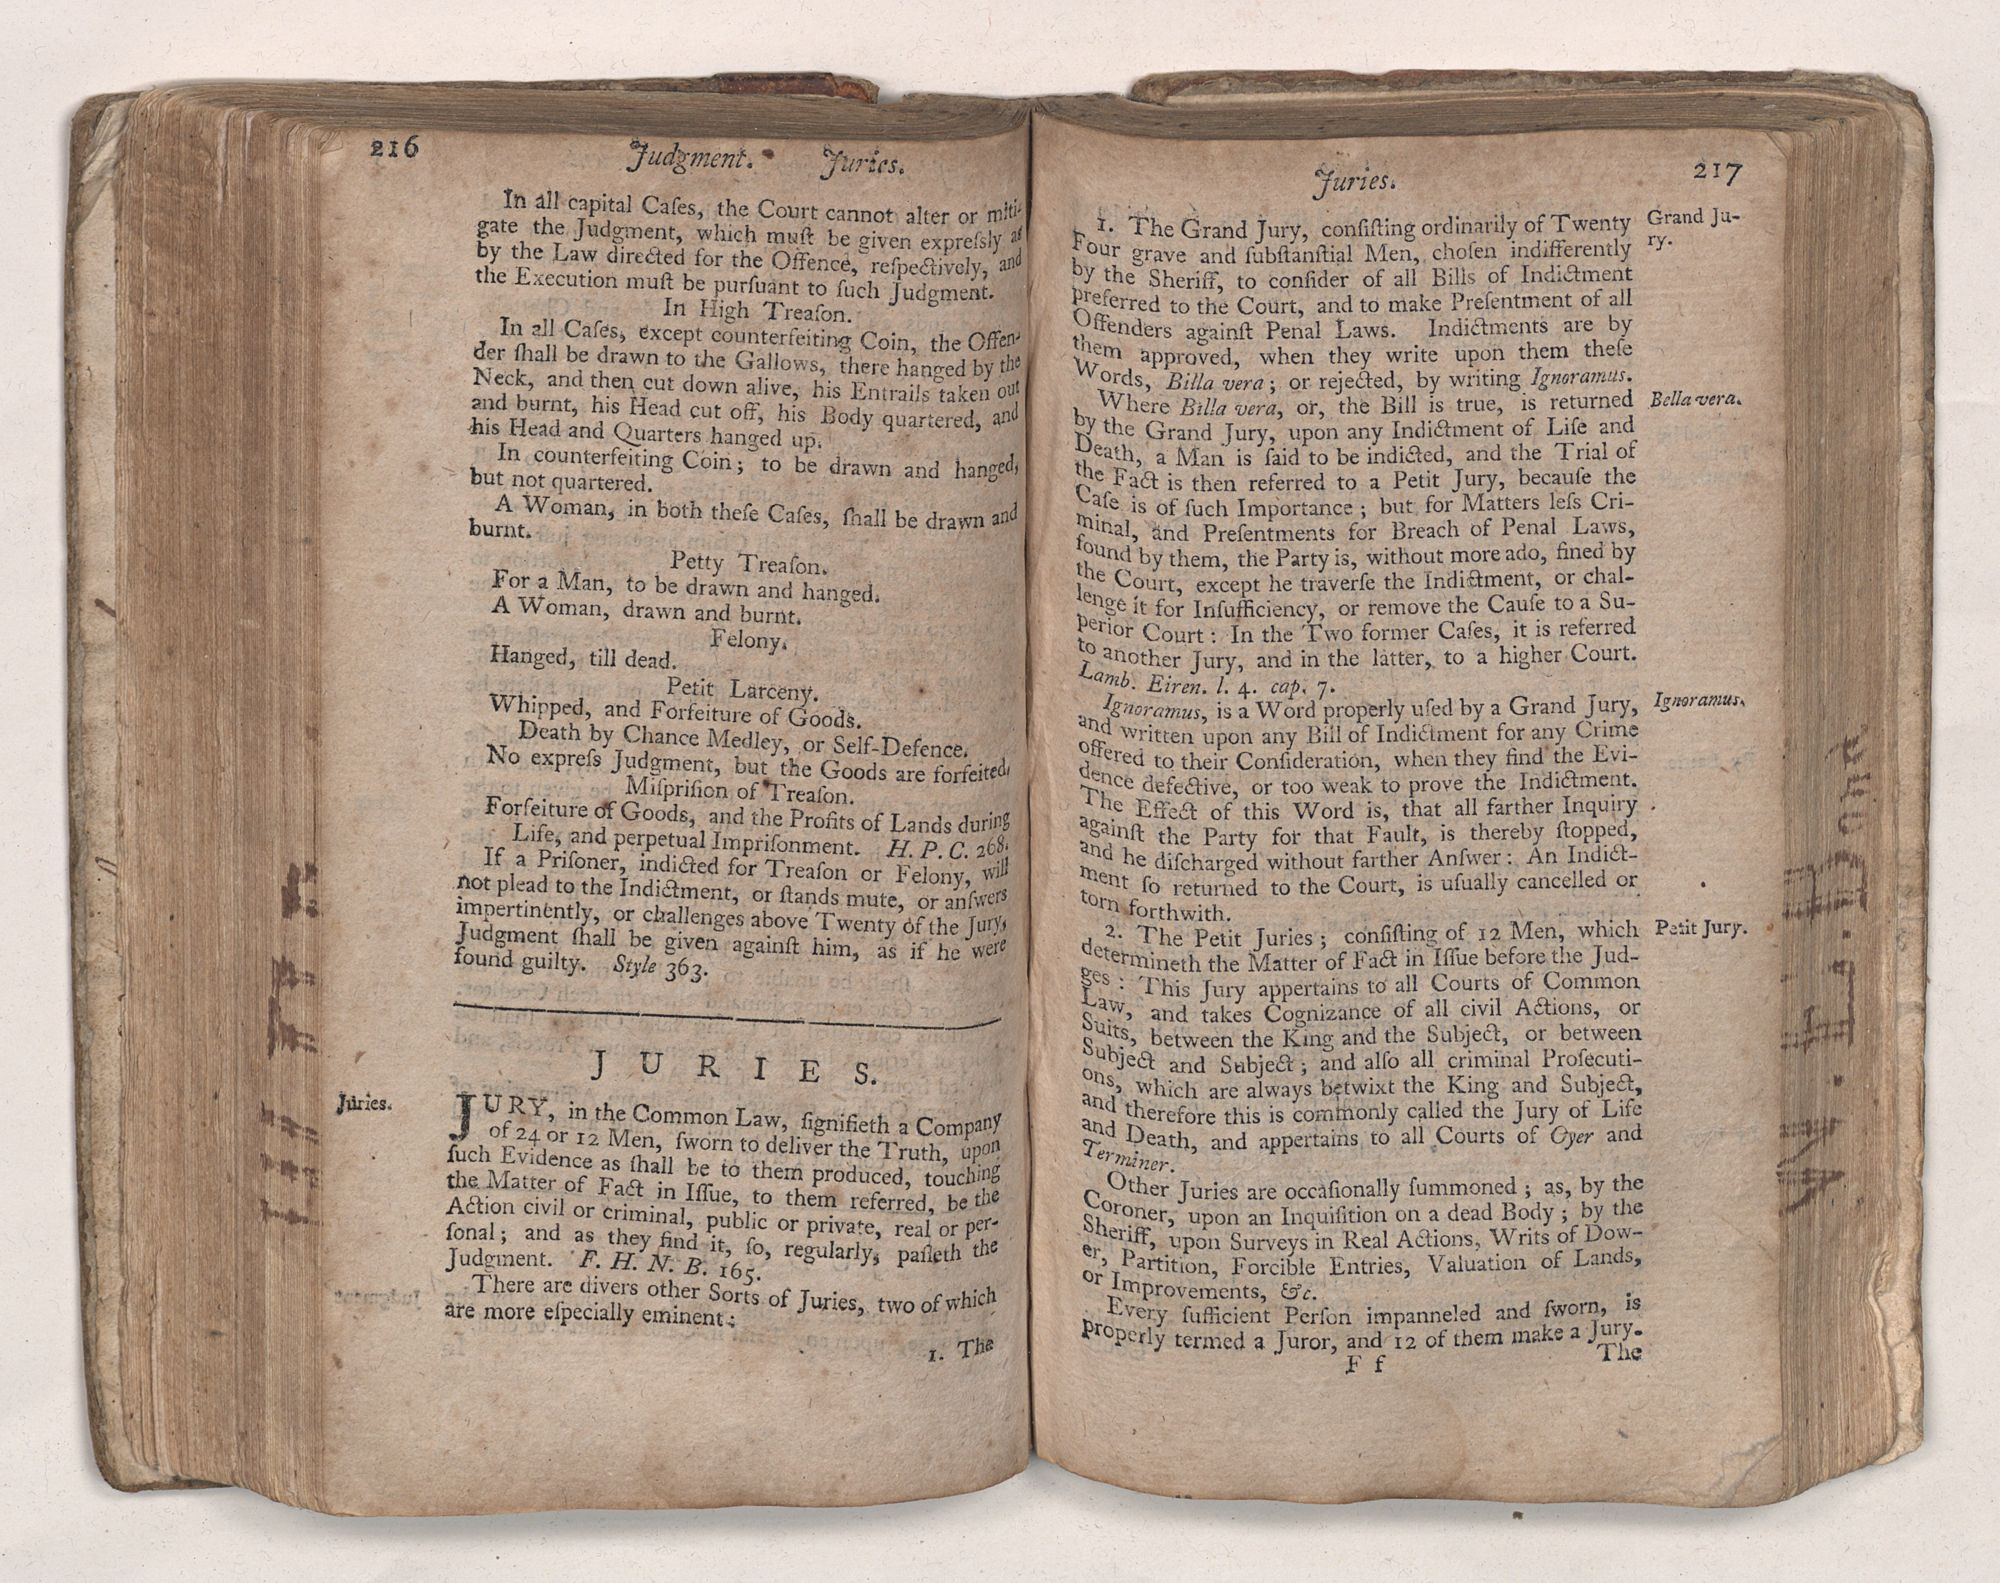 216
Judgment. Juries.
In all capital Caſes, the Court cannot alter or miti-
gate the Judgment, which muſt be given expreſsly as
by the Law directed for the Offence, reſpectively, and
the Execution muſt be purſuant to ſuch Judgment.
In High Treaſon.
In all Caſes, except counterfeiting Coin, the Offen-
der ſhall be drawn to the Gallows, there hanged by the
Neck, and then cut down alive, his Entrails taken out
and burnt, his Head cut off, his Body quartered, and
his Head and Quarters hanged up.
In counterfeiting Coin; to be drawn and hanged,
but not quartered.
A Woman, in both theſe Caſes, ſhall be drawn and
burnt.
Petty Treaſon.
For a Man, to be drawn and hanged.
A Woman, drawn and burnt.
Felony.
Hanged, till dead.
Petit Larceny.
Whipped, and Forfeiture of Goods.
Death by Chance Medley, or Self-Defence.
No expreſs Judgment, but the Goods are forfeited.
Miſpriſion of Treaſon.
Forfeiture of Goods, and the Profits of Lands during
Life, and perpetual Impriſonment. H. P. C. 268.
If a Priſoner, indicted for Treaſon or Felony, will
not plead to the Indictment, or ſtands mute, or anſwers
impertinently, or challenges above Twenty of the Jury,
Judgment ſhall be given againſt him, as if he were
found guilty. Style 363.
JURIES.
Juries.
JURY, in the Common Law, ſignifieth a Company
of 24 or 12 Men, ſworn to deliver the Truth, upon
ſuch Evidence as ſhall be to them produced, touching
the Matter of Fact in Iſſue, to them referred, be the
Action civil or criminal, public or private, real or per-
ſonal; and as they find it, ſo, regularly, paſſeth the
Judgment. F. H. N. B. 165.
There are divers other Sorts of Juries, two of which
are more eſpecially eminent:
1. The
Juries.
217
1. The Grand Jury, conſiſting ordinarily of Twenty
Four grave and ſubſtanſtial Men, choſen indifferently
by the Sheriff, to conſider of all Bills of Indictment
preferred to the Court, and to make Preſentment of all
Offenders againſt Penal Laws. Indictments are by
them approved, when they write upon them theſe
Words, Billa vera; or rejected, by writing Ignoramus.
Grand Ju-
ry.
Where Billa vera, or, the Bill is true, is returned
by the Grand Jury, upon any Indictment of Life and
Death, a Man is ſaid to be indicted, and the Trial of
the Fact is then referred to a Petit Jury, becauſe the
Caſe is of ſuch Importance; but for Matters leſs Cri-
minal, and Preſentments for Breach of Penal Laws,
found by them, the Party is, without more ado, fined by
the Court, except he traverſe the Indictment, or chal-
lenge it for Inſufficiency, or remove the Cauſe to a Su-
perior Court: In the Two former Caſes, it is referred
to another Jury, and in the latter, to a higher Court.
Lamb. Eiren. l. 4. cap. 7.
Bella vera.
Ignoramus, is a Word properly uſed by a Grand Jury,
and written upon any Bill of Indictment for any Crime
offered to their Conſideration, when they find the Evi-
dence defective, or too weak to prove the Indictment.
The Effect of this Word is, that all farther Inquiry
againſt the Party for that Fault, is thereby ſtopped,
and he diſcharged without farther Anſwer: An Indict-
ment ſo returned to the Court, is uſually cancelled or
torn forthwith.
Ignoramus.
2. The Petit Juries; conſiſting of 12 Men, which
determineth the Matter of Fact in Iſſue before the Jud-
ges: This Jury appertains to all Courts of Common
Law, and takes Cognizance of all civil Actions, or
Suits, between the King and the Subject, or between
Subject and Subject; and alſo all criminal Proſecuti-
ons, which are always betwixt the King and Subject,
and therefore this is commonly called the Jury of Life
and Death, and appertains to all Courts of Oyer and
Terminer.
Petit Jury.
Other Juries are occaſionally ſummoned; as, by the
Coroner, upon an Inquiſition on a dead Body; by the
Sheriff, upon Surveys in Real Actions, Writs of Dow-
er, Partition, Forcible Entries, Valuation of Lands,
or Improvements, &c.
Every ſufficient Perſon impanneled and ſworn, is
properly termed a Juror, and 12 of them make a Jury.
F f
The